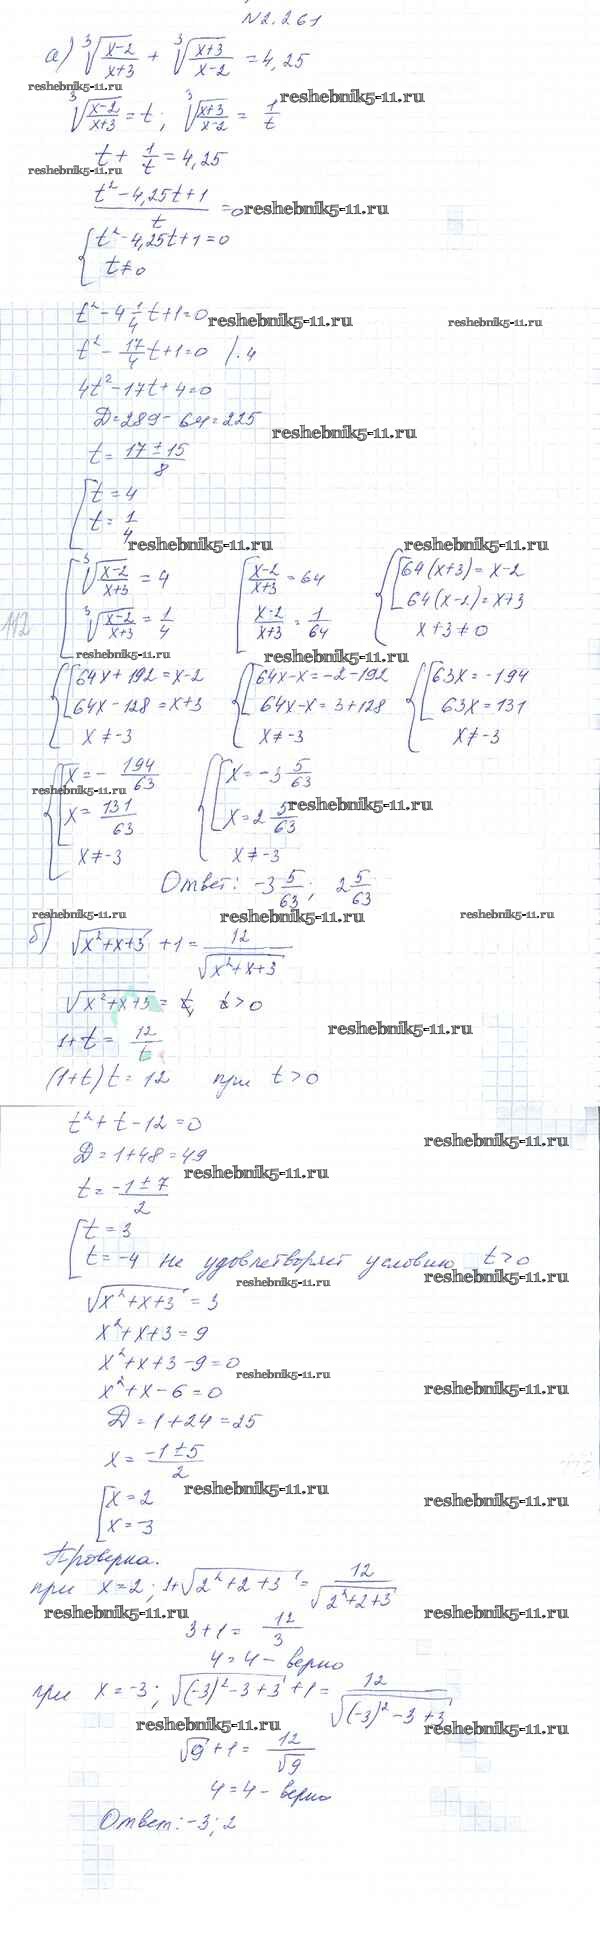 N2.261
а) ∛((x-2)/(x+3)) + ∛((x+3)/(x-2)) = 4,25
reshebnik5-11.ru reshebnik5-11.ru
∛((x-2)/(x+3)) = t; ∛((x+3)/(x-2)) = 1/t
t + 1/t = 4,25
reshebnik5-11.ru
(t²-4,25t+1)/t = 0 reshebnik5-11.ru
{ t²-4,25t+1=0
t≠0
t²-4 1/4 t+1=0 reshebnik5-11.ru reshebnik5-11.ru
t² - 17/4 t+1=0 /·4
4t²-17t+4=0
D=289-64=225
reshebnik5-11.ru
t = (17±15)/8
[ t=4
t=1/4
reshebnik5-11.ru reshebnik5-11.ru
[ ∛((x-2)/(x+3)) = 4 [ (x-2)/(x+3) = 64 { [ 64(x+3)=x-2
112
∛((x-2)/(x+3)) = 1/4 (x-2)/(x+3) = 1/64 64(x-2)=x+3
x+3≠0
reshebnik5-11.ru reshebnik5-11.ru
{ [ 64x+192=x-2 { [ 64x-x=-2-192 { [ 63x=-194
64x-128=x+3 64x-x=3+128 63x=131
x≠-3 x≠-3 x≠-3
{ [ x=- 194/63 { [ x=-3 5/63
reshebnik5-11.ru
x= 131/63 x=2 5/63 reshebnik5-11.ru
x≠-3 x≠-3
Ответ: -3 5/63; 2 5/63
reshebnik5-11.ru reshebnik5-11.ru reshebnik5-11.ru
б) √(x²+x+3) + 1 = 12/√(x²+x+3)
√(x²+x+3) = t, t>0
reshebnik5-11.ru
1+t = 12/t
(1+t)t=12 при t>0
t²+t-12=0
reshebnik5-11.ru
D=1+48=49
reshebnik5-11.ru
t = (-1±7)/2
[ t=3
t=-4 не удовлетворяет условию t>0
reshebnik5-11.ru reshebnik5-11.ru
√(x²+x+3) = 3
x²+x+3=9
x²+x+3-9=0
reshebnik5-11.ru
x²+x-6=0 reshebnik5-11.ru
D=1+24=25
x = (-1±5)/2
reshebnik5-11.ru reshebnik5-11.ru
[ x=2
x=-3
Проверка.
при x=2; 1+√(2²+2+3) = 12/√(2²+2+3)
reshebnik5-11.ru reshebnik5-11.ru
3+1 = 12/3
4=4 - верно
при x=-3; √((-3)²-3+3) + 1 = 12/√((-3)²-3+3)
reshebnik5-11.ru reshebnik5-11.ru
√9+1 = 12/√9
4=4 - верно
Ответ: -3; 2